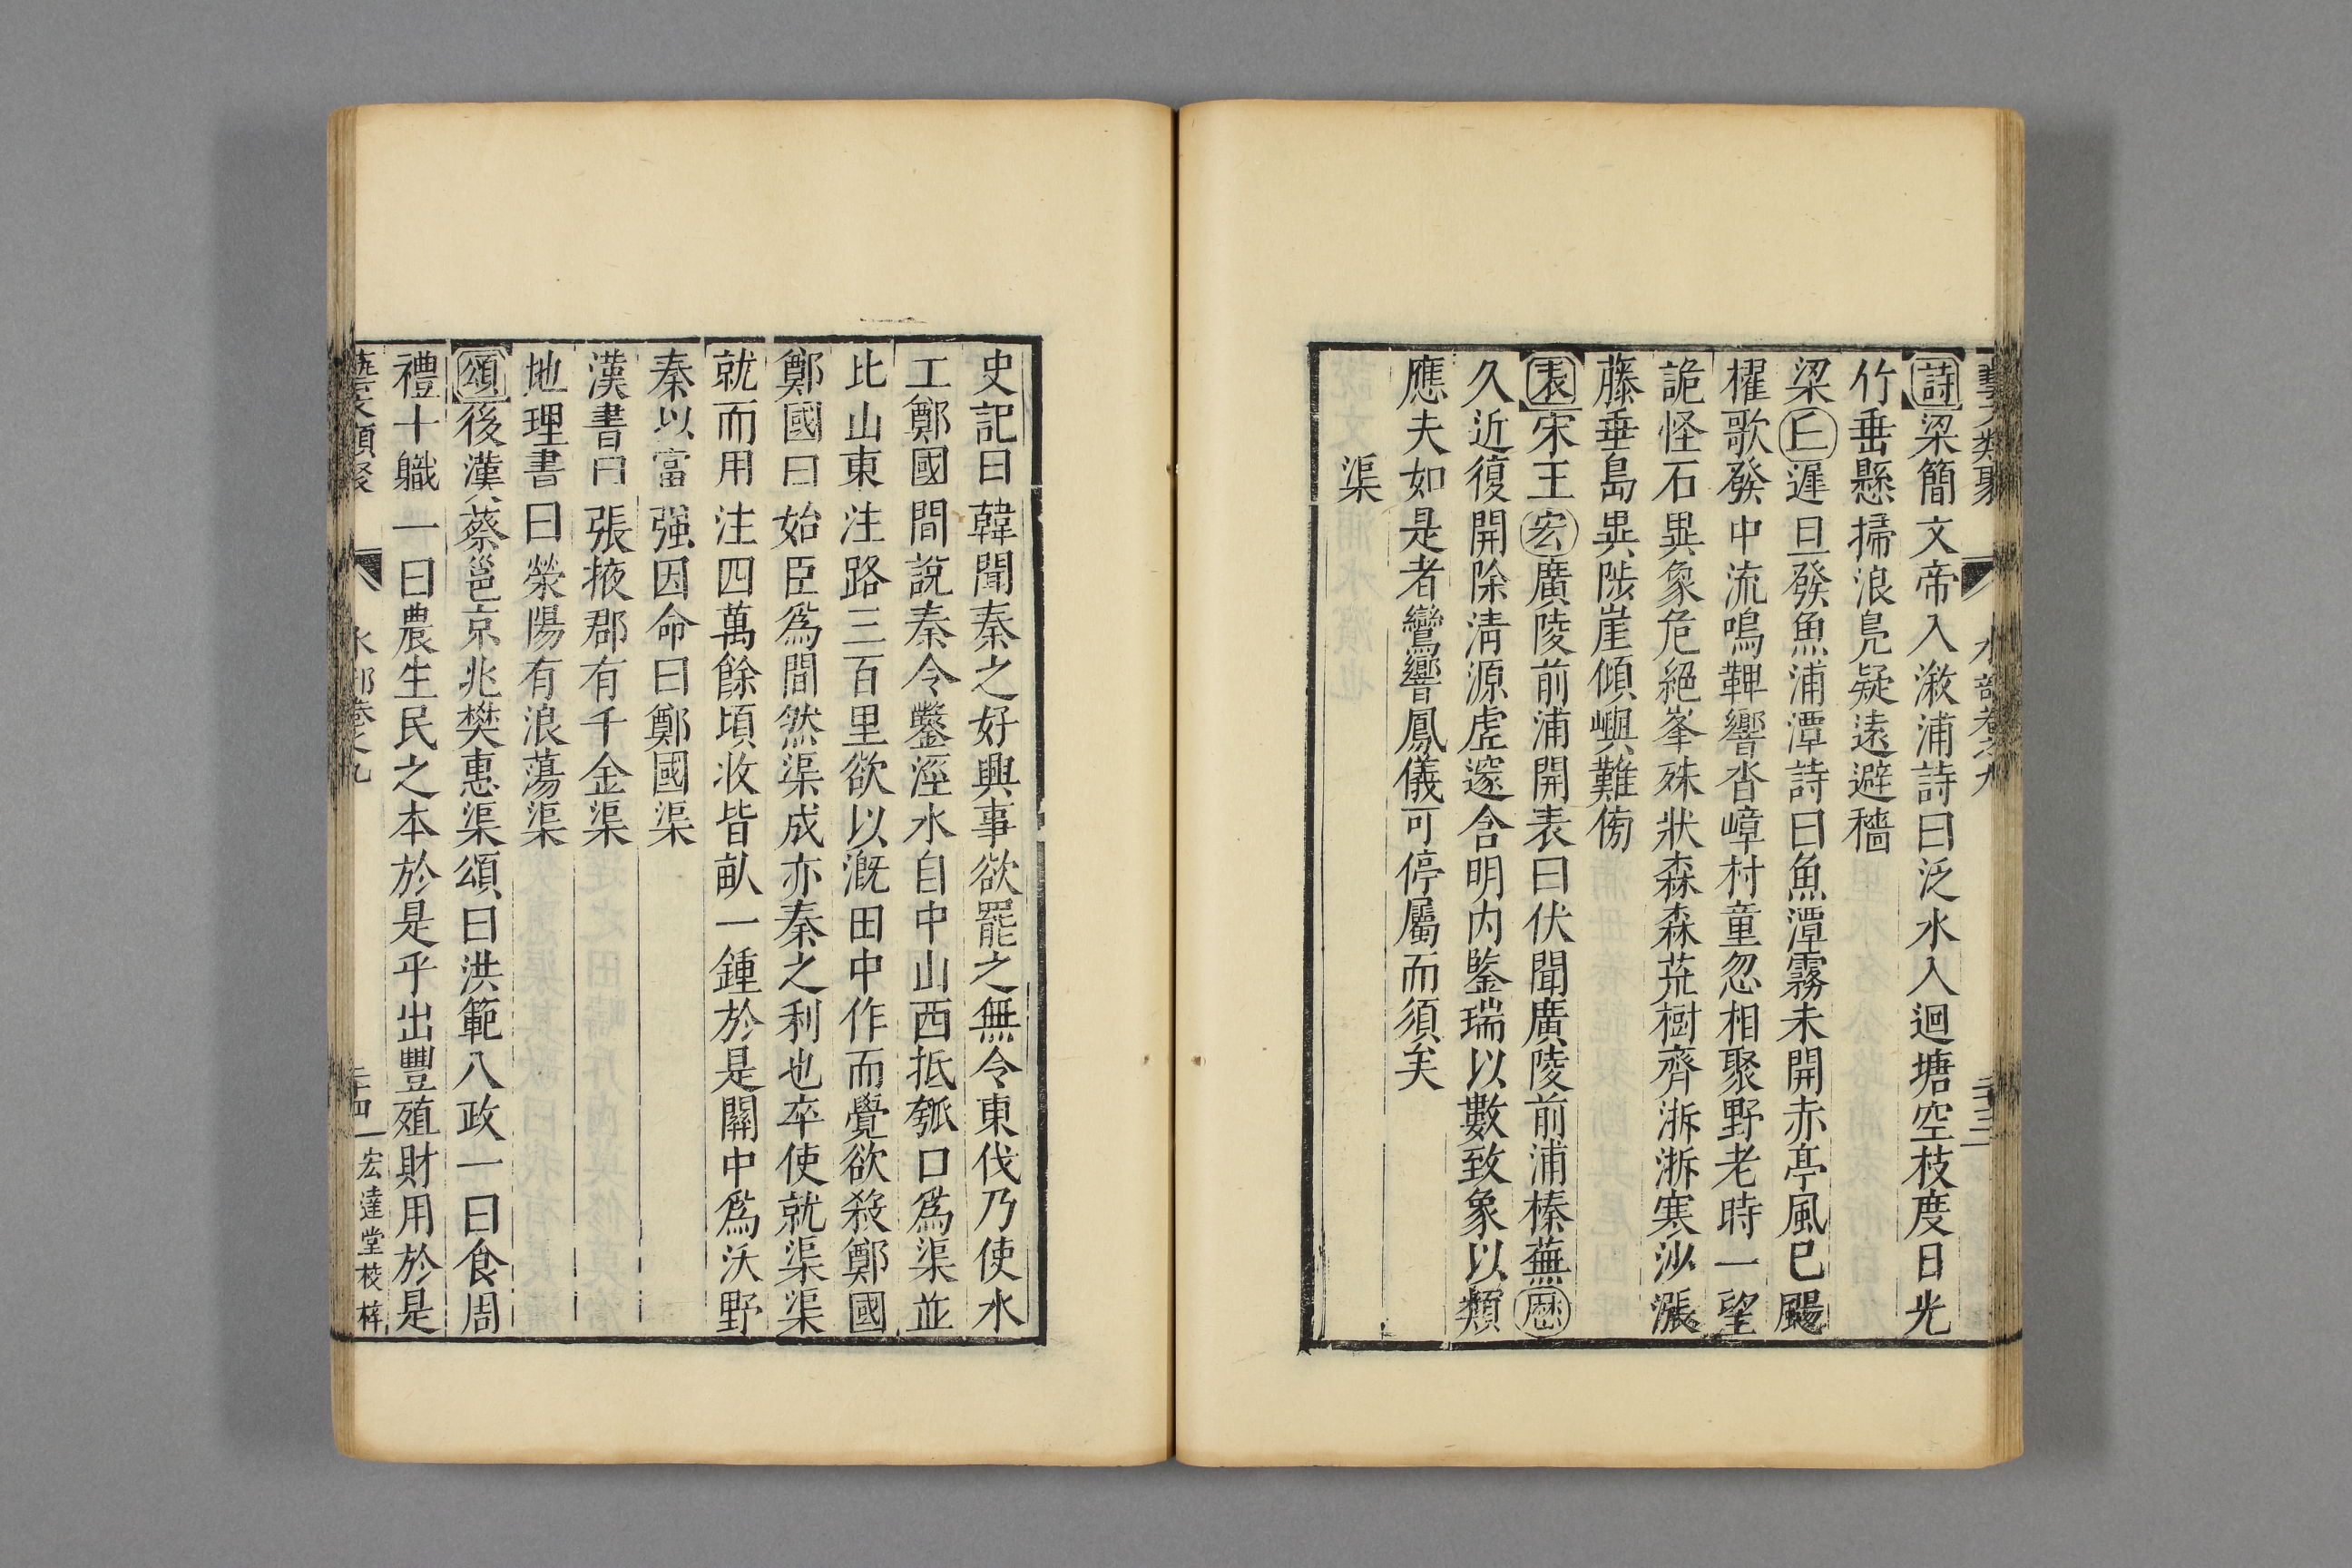 藝文類聚 水部卷之九 三十三
詩梁簡文帝入漵浦詩曰泛水入迴塘空枝度日光
竹垂懸掃浪鳧疑遠避檣
梁丘遲旦發魚浦潭詩曰魚潭霧未開赤亭風已颺
櫂歌發中流鳴鞞響沓嶂村童忽相聚野老時一望
詭怪石異象危絕峯殊狀森森荒樹齊淅淅寒沙漲
藤垂島異陟崖傾嶼難傍
表宋王宏廣陵前浦開表曰伏聞廣陵前浦榛蕪歷
久近復開除淸源虛邃含明内鑒瑞以數致象以類
應夫如是者鸞響鳳儀可停屬而須矣
渠
史記曰韓聞秦之好興事欲罷之無令東伐乃使水
工鄭國間說秦令鑿涇水自中山西抵瓠口爲渠並
比山東注路三百里欲以漑田中作而覺欲殺鄭國
鄭國曰始臣爲間然渠成亦秦之利也卒使就渠渠
就而用注四萬餘頃收皆畝一鍾於是關中爲沃野
秦以富强因命曰鄭國渠
漢書曰張掖郡有千金渠
地理書曰滎陽有浪蕩渠
頌後漢蔡邕京兆樊惠渠頌曰洪範八政一曰食周
禮十職一曰農生民之本於是乎出豐殖財用於是
藝文類聚 水部卷之九 三十四 宏達堂校梓